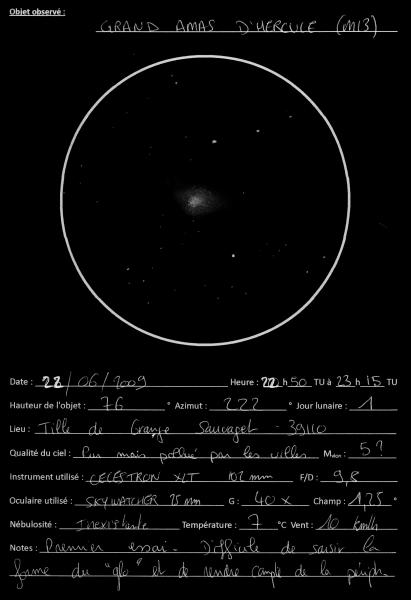 Objet observé :
GRAND AMAS D'HERCULE (M13)
Date : 22/06/2009 Heure : 22 h 50 TU à 23 h 15 TU
Hauteur de l'objet : 76 ° Azimut : 222 ° Jour lunaire : 1
Lieu : Tille de Grange Sauvaget - 39110
Qualité du ciel : Pur mais pollué par les villes Malon : 5 ?
Instrument utilisé : CELESTRON XLT 102 mm F/D : 9,8
Oculaire utilisé : SKYWATCHER 25 mm G : 40 x Champ : 1,25 °
Nébulosité : Inexistante Température : 7 °C Vent : 10 km/h
Notes : Premier essai. Difficile de saisir la
forme du "glo" et de rendre compte de la périph.